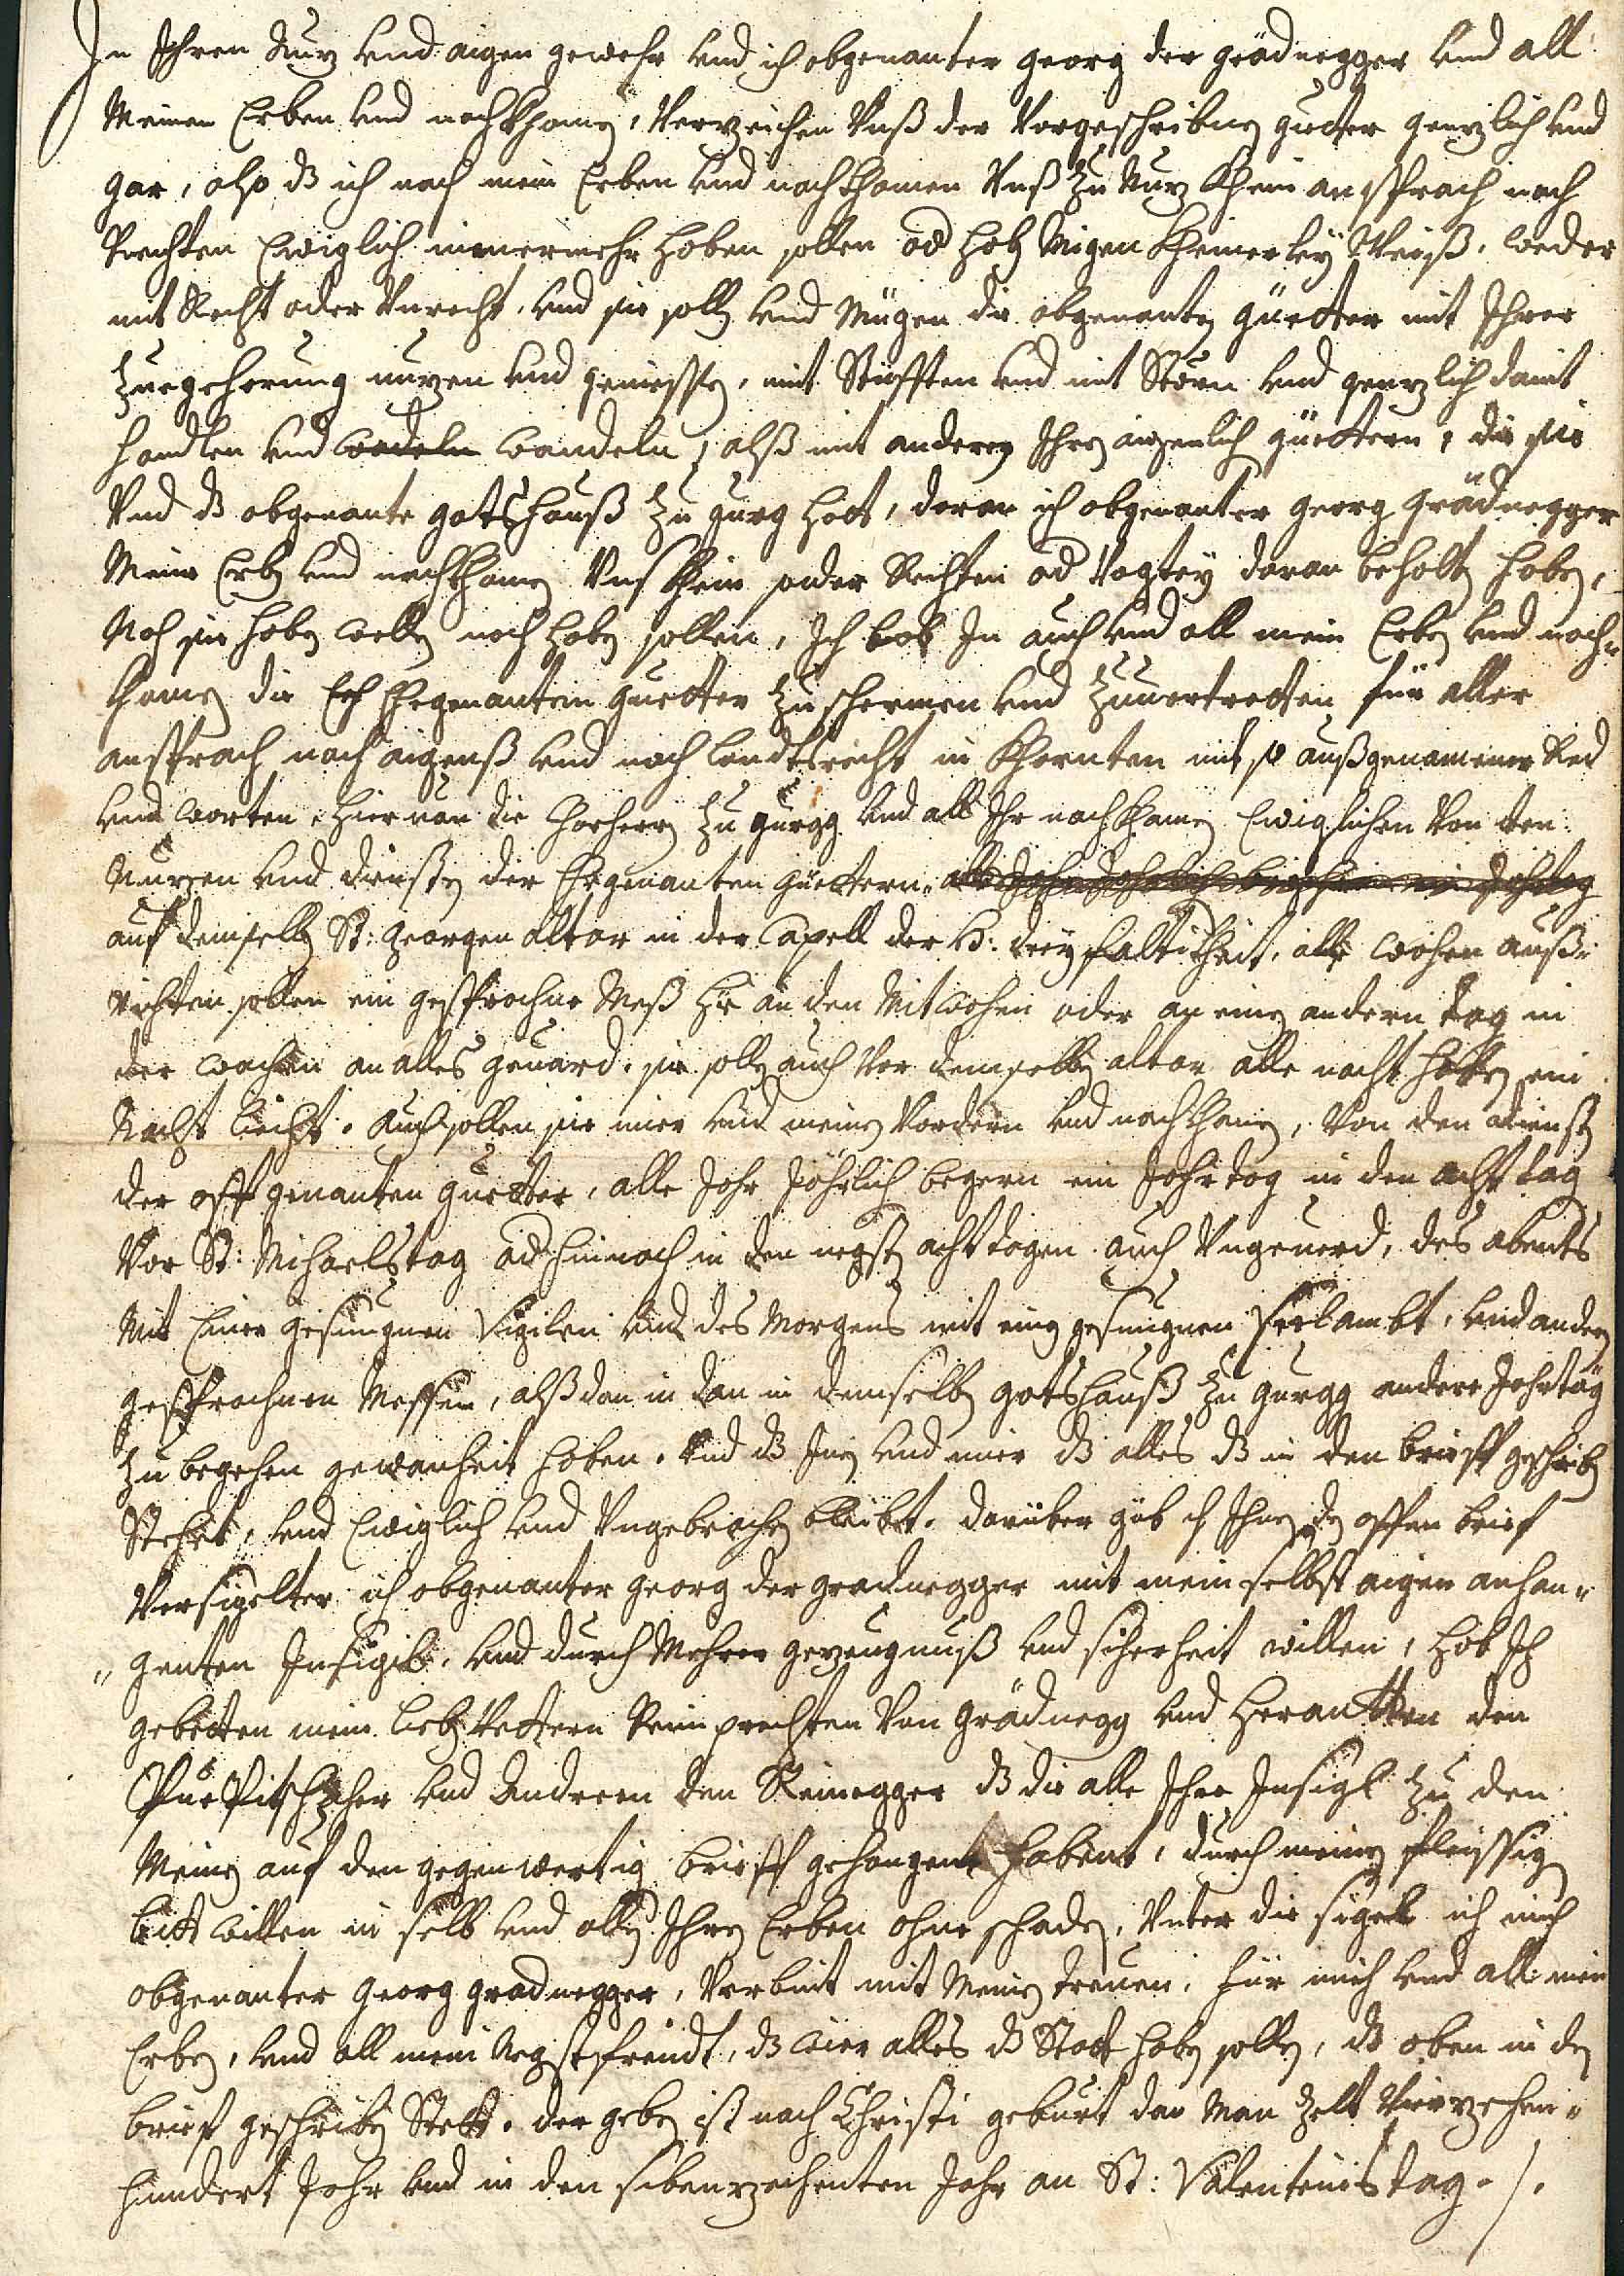 In Ihren Nuz vnd aigen gewehr vnd ich obgenanter Georg der grädnegger vnd all
Meinen Erben vnd nachkhomen, Verzeichen Vnß der Vorgeschribnen güetter genzlich vnd
gar, also dz ich noch mein Erben vnd nachkhomen Vnß zu Nuz khein ansprach noch
Rechten Ewiglich nimermehr haben sollen od holz mügen kheinerley Weiß, weder
mit Recht oder Vnrecht, vnd sie solln vnd Mügen die obgenanten güetter mit Ihrer
Zuegehorung nuzen vnd geniessen, mit Stüfften vnd mit Störn vnd genzlich damit
handlen vnd wadeln wandeln, alß mit anderen Ihren aigenlich güettern, die sie
Vnd dz obgenante gottshauß zu gurg hat, daran ich obgenanter georg grädnegger
Meine Erben vnd nachkhomen Vns khein sonder Rechten od Vogtey daran behalten haben,
Noch sie haben wellen noch haben sollen, Ich lob In auch vnd all mein Erben vnd nach"
khomen die Ehegenanten guetter zu schermen vnd zuuertretten für aller
ansprach nach aigenß vnd nach landtsrecht in Khernten mit so außgenomener Red
vnd worten, hieruon die Chorherrn zu gurgg vnd all Ihr nachkhomen Ewiglichen Von den
Nuzen vnd diensten der Ehegenanten güettern, alle Jahr Jahrlich begehen ein Jahrtag
auf demselben St: Georgen altar in der Capell der H: dreyfaltikheit, alle wochen auß"
richten sollen ein gesprochne Meß hie an den Mitwochen oder an einen andern tag in
der wochen an alles geuard. sie sollen auch vor demselben altar alle nacht haben ein
Nacht liecht. Auch sollen sie mier vnd meinen Vordern vnd nachkhomen, Von den dienst
der offtgenanten guetter, alle Jahr Jährlich begern ein Jahrtag in den acht tag
Vor St: Michaelstag od hinnach in den negsten acht tagen auch Vngeuerd, des abents
Mit Einer gesungnen Vigilen vnd des Morgens mit einen gesungnen Seelambt, vnd andern
gesprochnen Messen, alß dan in dan in demselben gotshauß zu gurgg andere Jahrtäg
zu begehen gewanheit haben. Vnd dz Inen vnd mier dz alles dz in den brieff geschriben
Stehet, vnd Ewiglich vnd Vngebrochen bleibet. darüber gib ich Ihnen den offen brief
Versigelter ich obgenanter georg der gradnegger mit mein selbst aigen anhan"
"genten Insigil, vnd durch Mehrer gezeugnuß vnd sicherheit willen, hab Ich
gebetten mein lieben Vettern Reinprechten Von Grädnegg vnd Herantten den
 vnd Andreen den Steinegger dz die alle Ihre Insigl zu den
Meinen auf den gegenwertig brieff gehangent habent, durch meiner fleissigen
bitt willen in selb vnd allen Ihren Erben ohne schaden, Vnter die sigell ich mich
obgenanter Georg gradnegger, Verbint mit Meinen treuen, für mich vnd all mein
Erben, vnd all mein Negstfreindt, dz wier alles dz Statt haben sollen, dz oben in den
brief geschriben Stett. der geben ist nach Christi geburt dan Man zelt Vierzehen"
hundert Jahr vnd in den sibenzechenten Jahr an St: Valentinis tag. /.